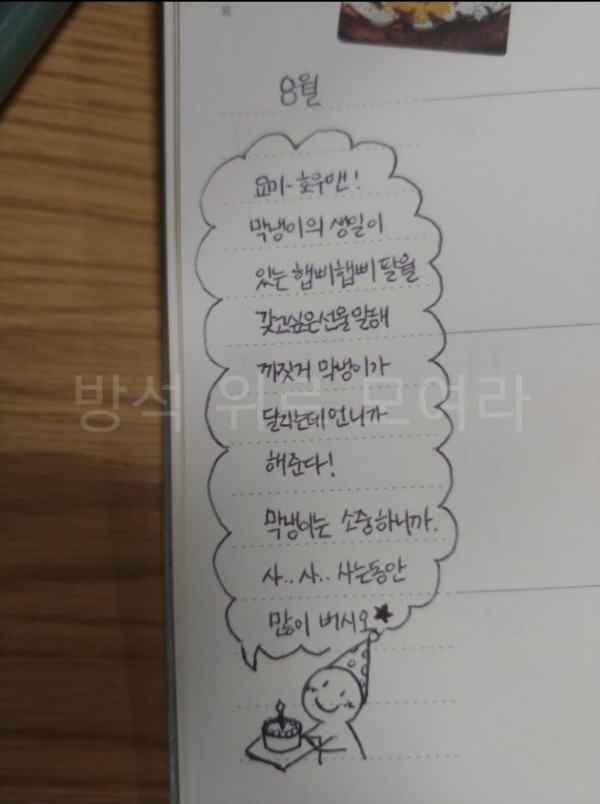 록
8월
요미-호우앤!
막냉이의 생일이
있는 햅삐햅삐 팔월
갖고싶은선물말해
까짓거 막냉이가
달라는데 언니가
해준다!
막냉이는 소중하니까.
사.. 사.. 사는동안
많이 버시오★
방석 위로 모여라